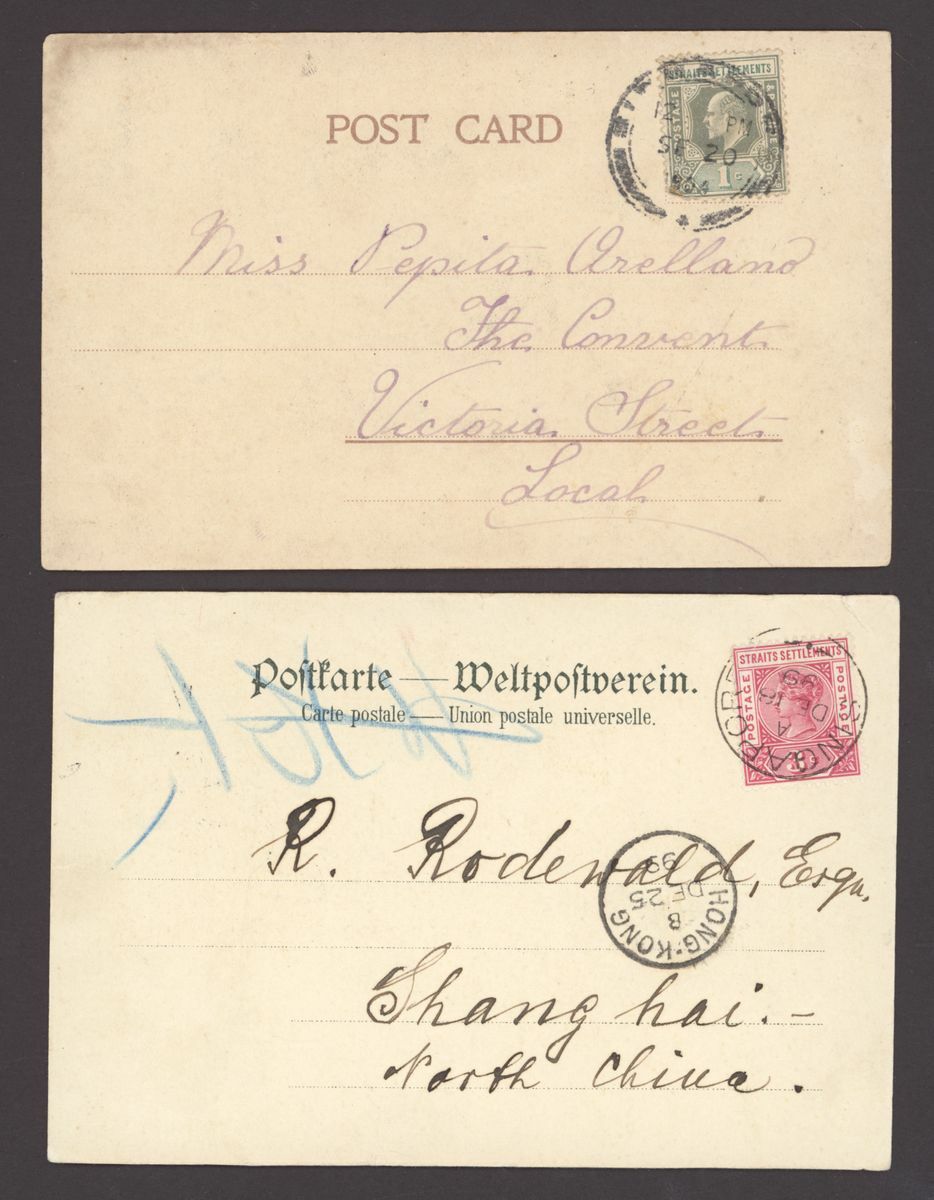 POST CARD
STRAITS SETTLEMENTS
POSTAGE
1c
12 PM
SP 20
1904
Miss Pepita Arellano
The Convent
Victoria Street
Local
Postkarte — Weltpostverein.
Carte postale — Union postale universelle.
STRAITS SETTLEMENTS
POSTAGE POSTAGE
SINGAPORE
A
DE 18
99
R. Rodewald, Esqu.
HONG-KONG
8
DE 25
99
Shanghai.-
North China.